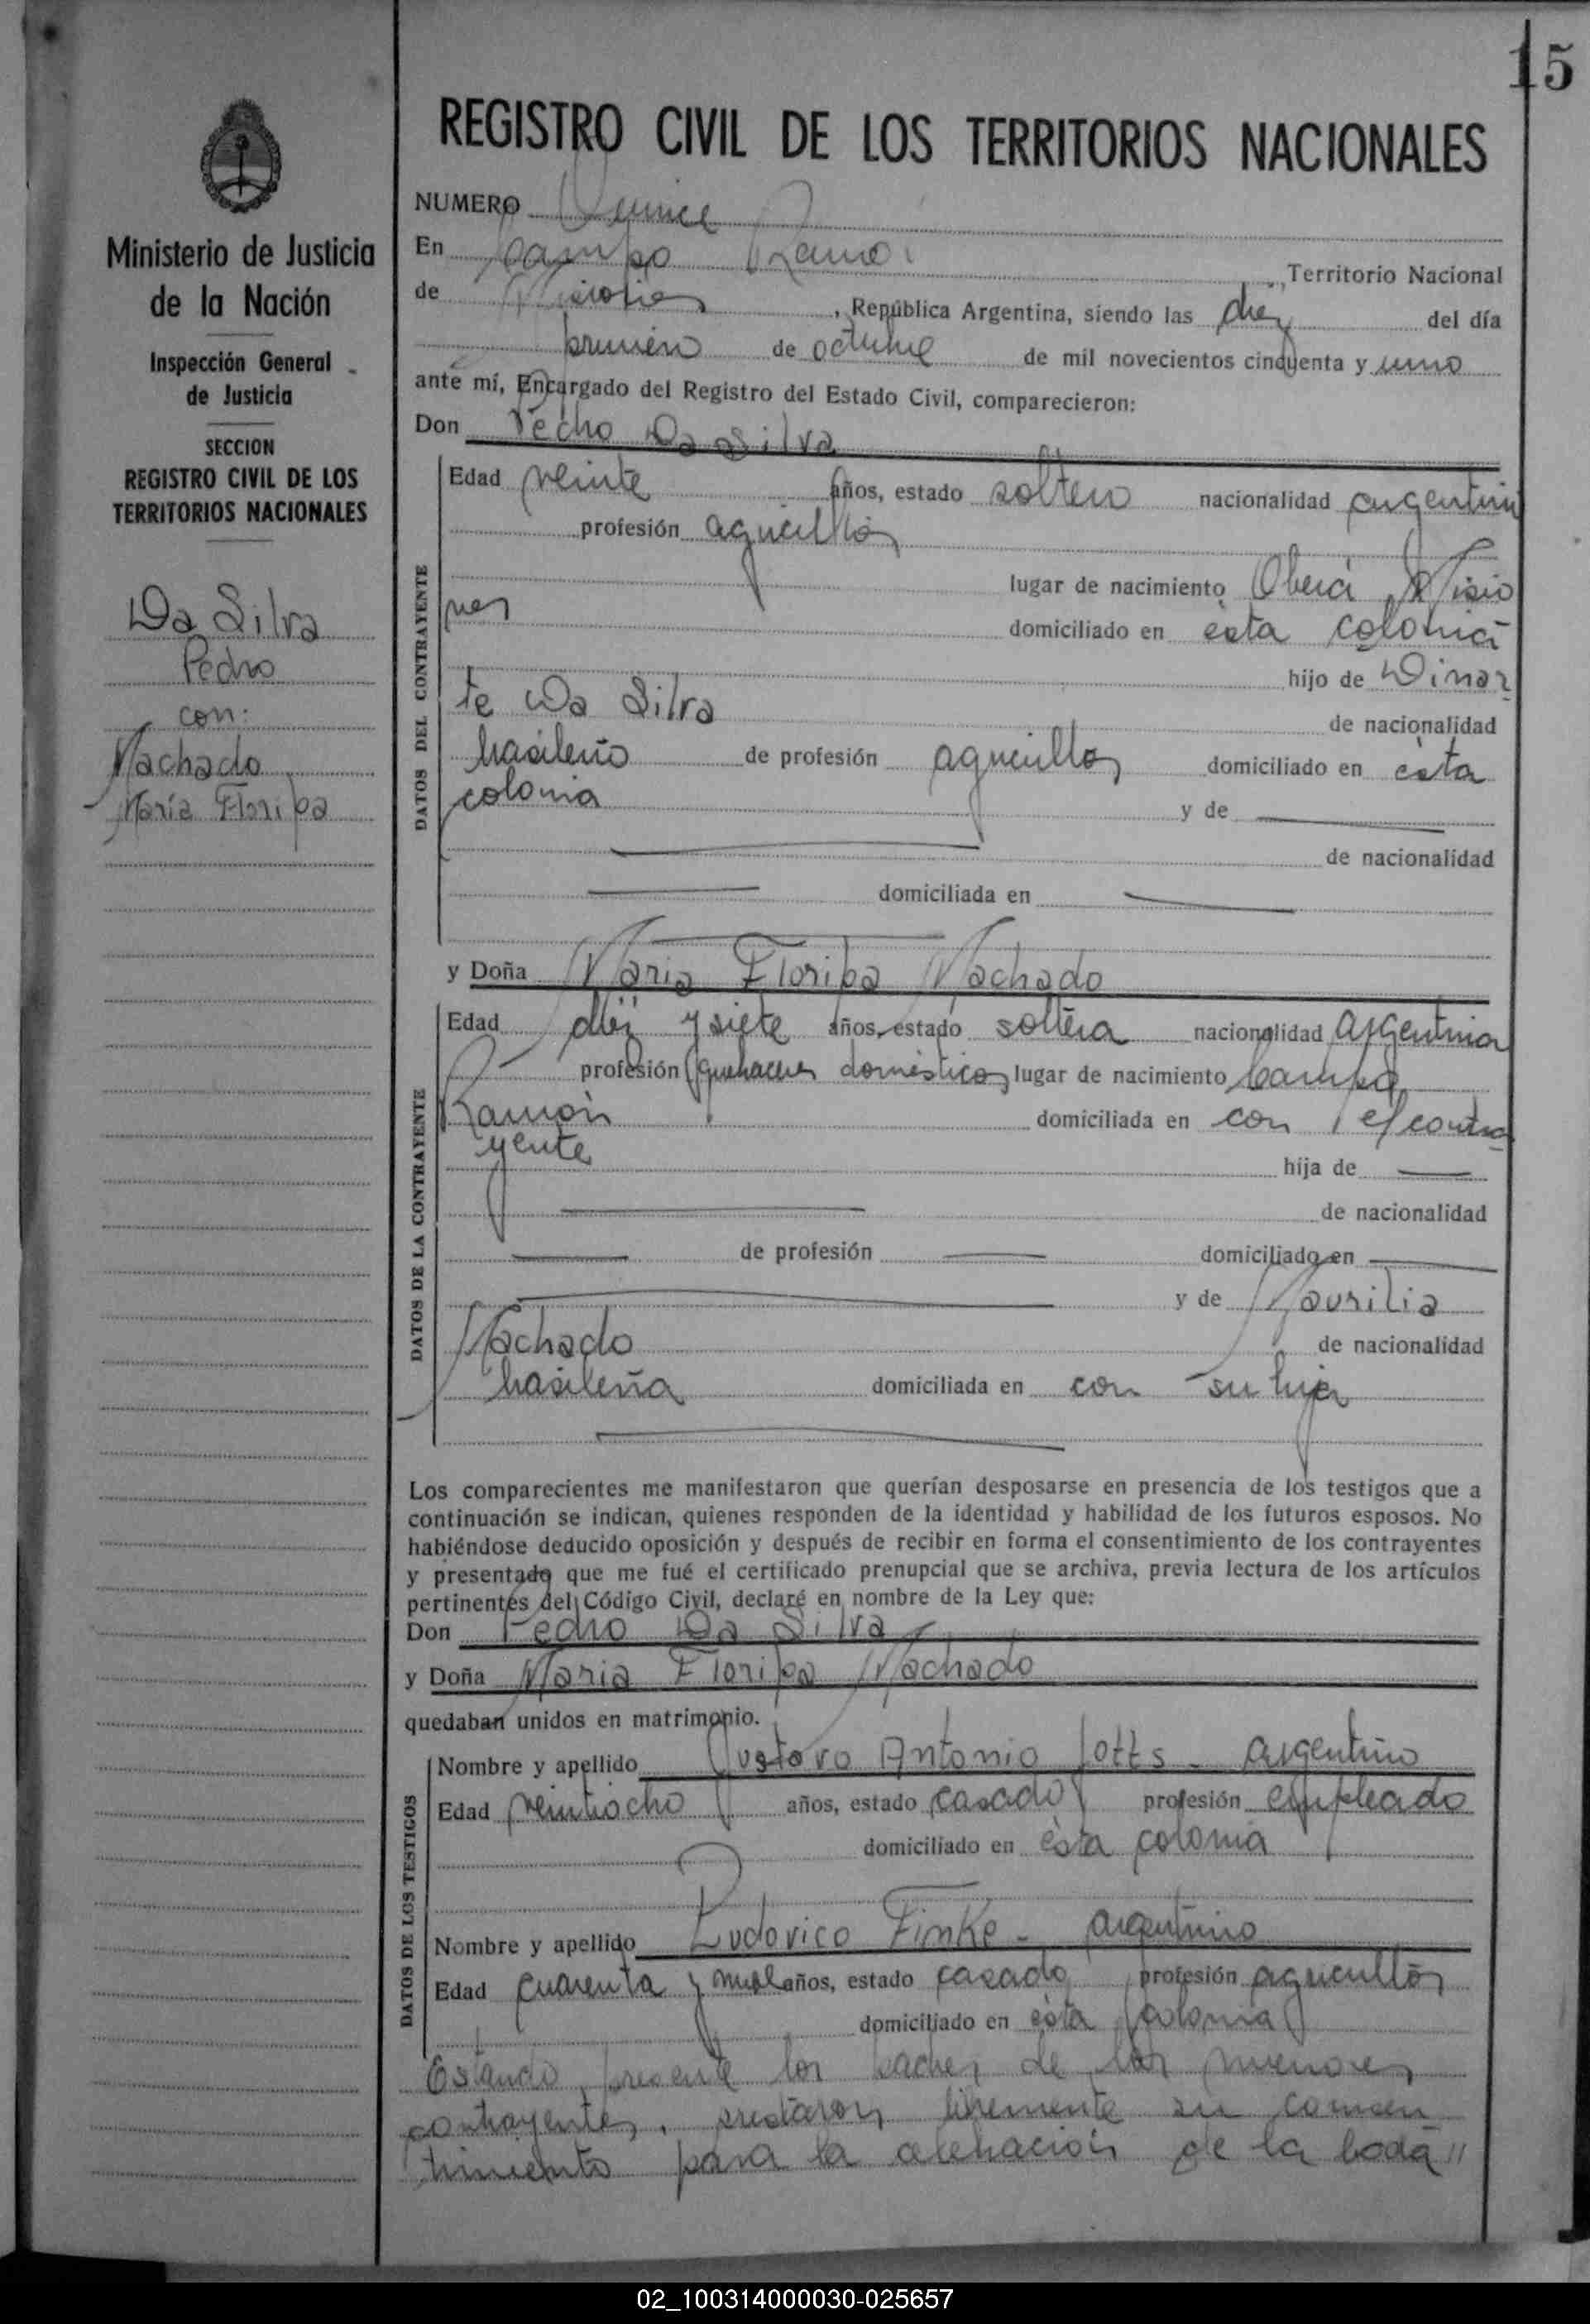 15
REGISTRO CIVIL DE LOS TERRITORIOS NACIONALES
Ministerio de Justicia
de la Nación
Inspección General
de Justicia
SECCION
REGISTRO CIVIL DE LOS
TERRITORIOS NACIONALES
Da Silva
Pedro
con:
Machado
María Floripa
NUMERO Quince
En Campo Ramón
, Territorio Nacional
de Misiones , República Argentina, siendo las diez del día
primero de octubre de mil novecientos cincuenta y uno
ante mí, Encargado del Registro del Estado Civil, comparecieron:
Don Pedro Da Silva
DATOS DEL CONTRAYENTE
Edad veinte años, estado soltero nacionalidad argentino
profesión agricultor
lugar de nacimiento Oberá Misio
nes domiciliado en ésta colonia
hijo de Dinar
te Da Silva de nacionalidad
brasileño de profesión agricultor domiciliado en ésta
colonia y de
de nacionalidad
domiciliada en
y Doña Maria Floripa Machado
DATOS DE LA CONTRAYENTE
Edad diez y siete años, estado soltera nacionalidad argentina
profesión quehaceres domésticos lugar de nacimiento Campo
Ramón domiciliada en con el contra
yente
hija de
de nacionalidad
de profesión domiciliado en
y de Maurilia
Machado de nacionalidad
brasileña domiciliada en con su hija
Los comparecientes me manifestaron que querían desposarse en presencia de los testigos que a
continuación se indican, quienes responden de la identidad y habilidad de los futuros esposos. No
habiéndose deducido oposición y después de recibir en forma el consentimiento de los contrayentes
y presentado que me fué el certificado prenupcial que se archiva, previa lectura de los artículos
pertinentes del Código Civil, declaré en nombre de la Ley que:
Don Pedro Da Silva
y Doña Maria Floripa Machado
quedaban unidos en matrimonio.
DATOS DE LOS TESTIGOS
Nombre y apellido Gustavo Antonio - argentino
Edad veintiocho años, estado casado profesión empleado
domiciliado en ésta colonia
Nombre y apellido Ludovico Finke - argentino
Edad cuarenta y nueve años, estado casado profesión agricultor
domiciliado en ésta colonia
Estando presente los padres de los menores
contrayentes, prestaron libremente su consen
timiento para la celebración de la boda //
02_100314000030-025657